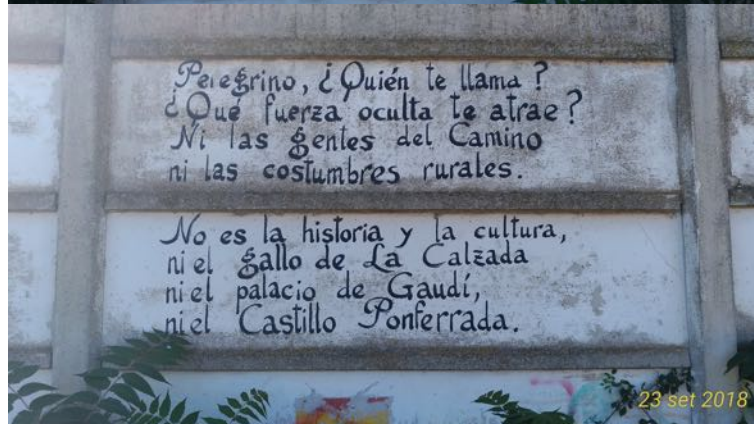 Peregrino, ¿Quién te llama?
¿Qué fuerza oculta te atrae?
Ni las gentes del Camino
ni las costumbres rurales.
No es la historia y la cultura,
ni el gallo de La Calzada
ni el palacio de Gaudí,
ni el Castillo Ponferrada.
23 set 2018